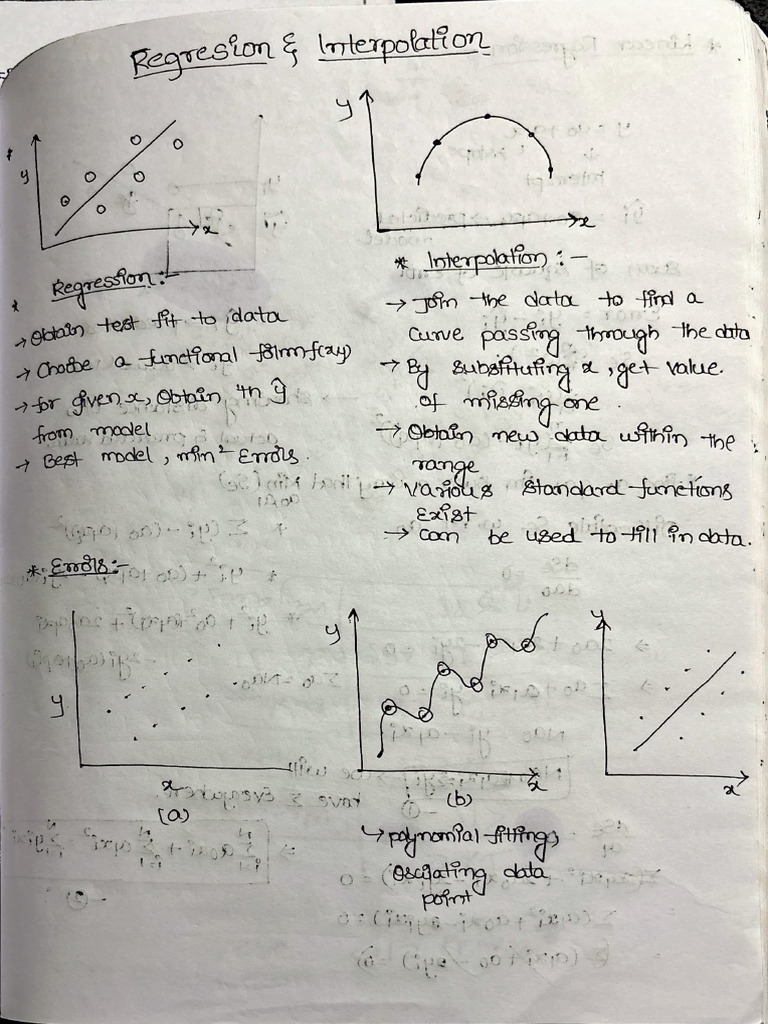 Regresion & Interpolation
y
x
y
x
* Regression:-
→ Obtain test fit to data
→ Choose a functional form f(x,y)
→ for given x, Obtain ŷ
from model
→ Best model, min² Errors.
* Interpolation :-
→ Join the data to find a
curve passing through the data
→ By substituting x, get value
of missing one.
→ Obtain new data within the
range
→ Various standard functions
Exist
→ can be used to fill in data.
* Errors:-
y
x
(a)
y
x
(b)
↳ polynomial fitting,
Oscilating data
point
y
x